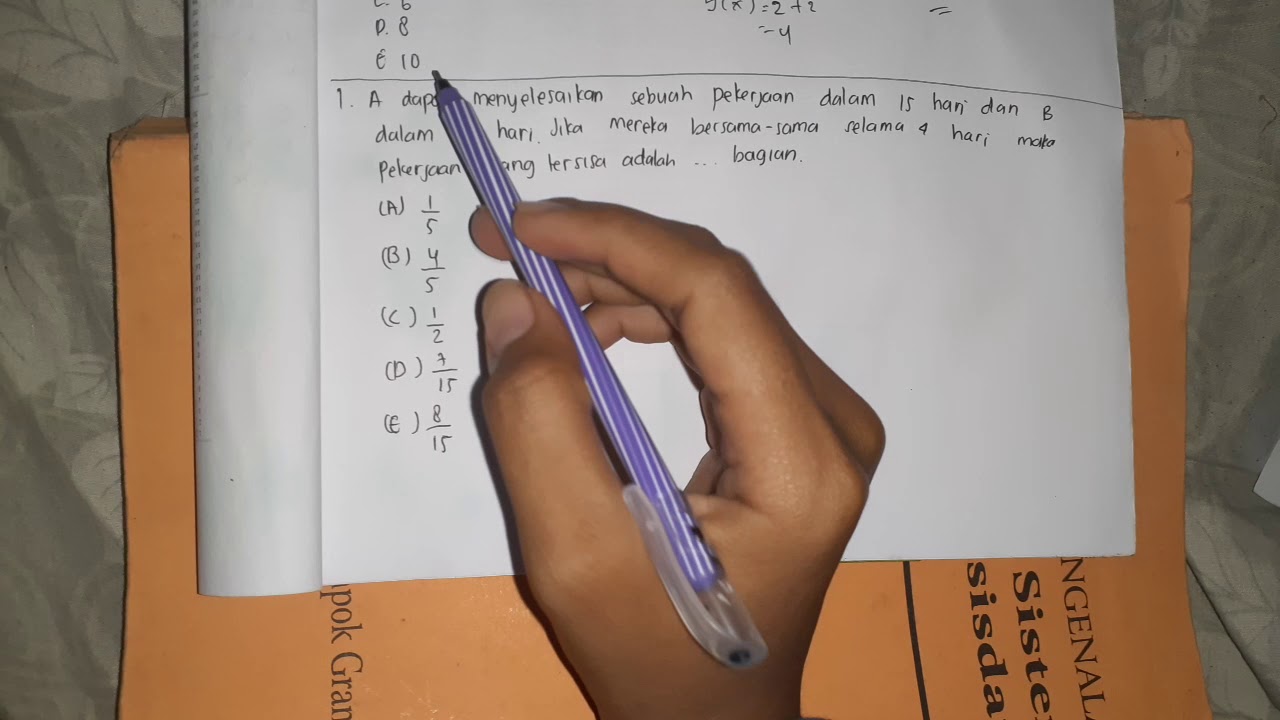 D. 8
E 10
y(x) = 2 + 2
= 4
=
1. A menyelesaikan sebuah pekerjaan dalam 15 hari dan B
dalam hari. Jika mereka bersama-sama selama 4 hari maka
pekerjaan tersisa adalah ... bagian.
(A) 1/5
(B) 4/5
(C) 1/2
(D) 7/15
(E) 8/15
pok Gran
NGENALA
Siste
sisda